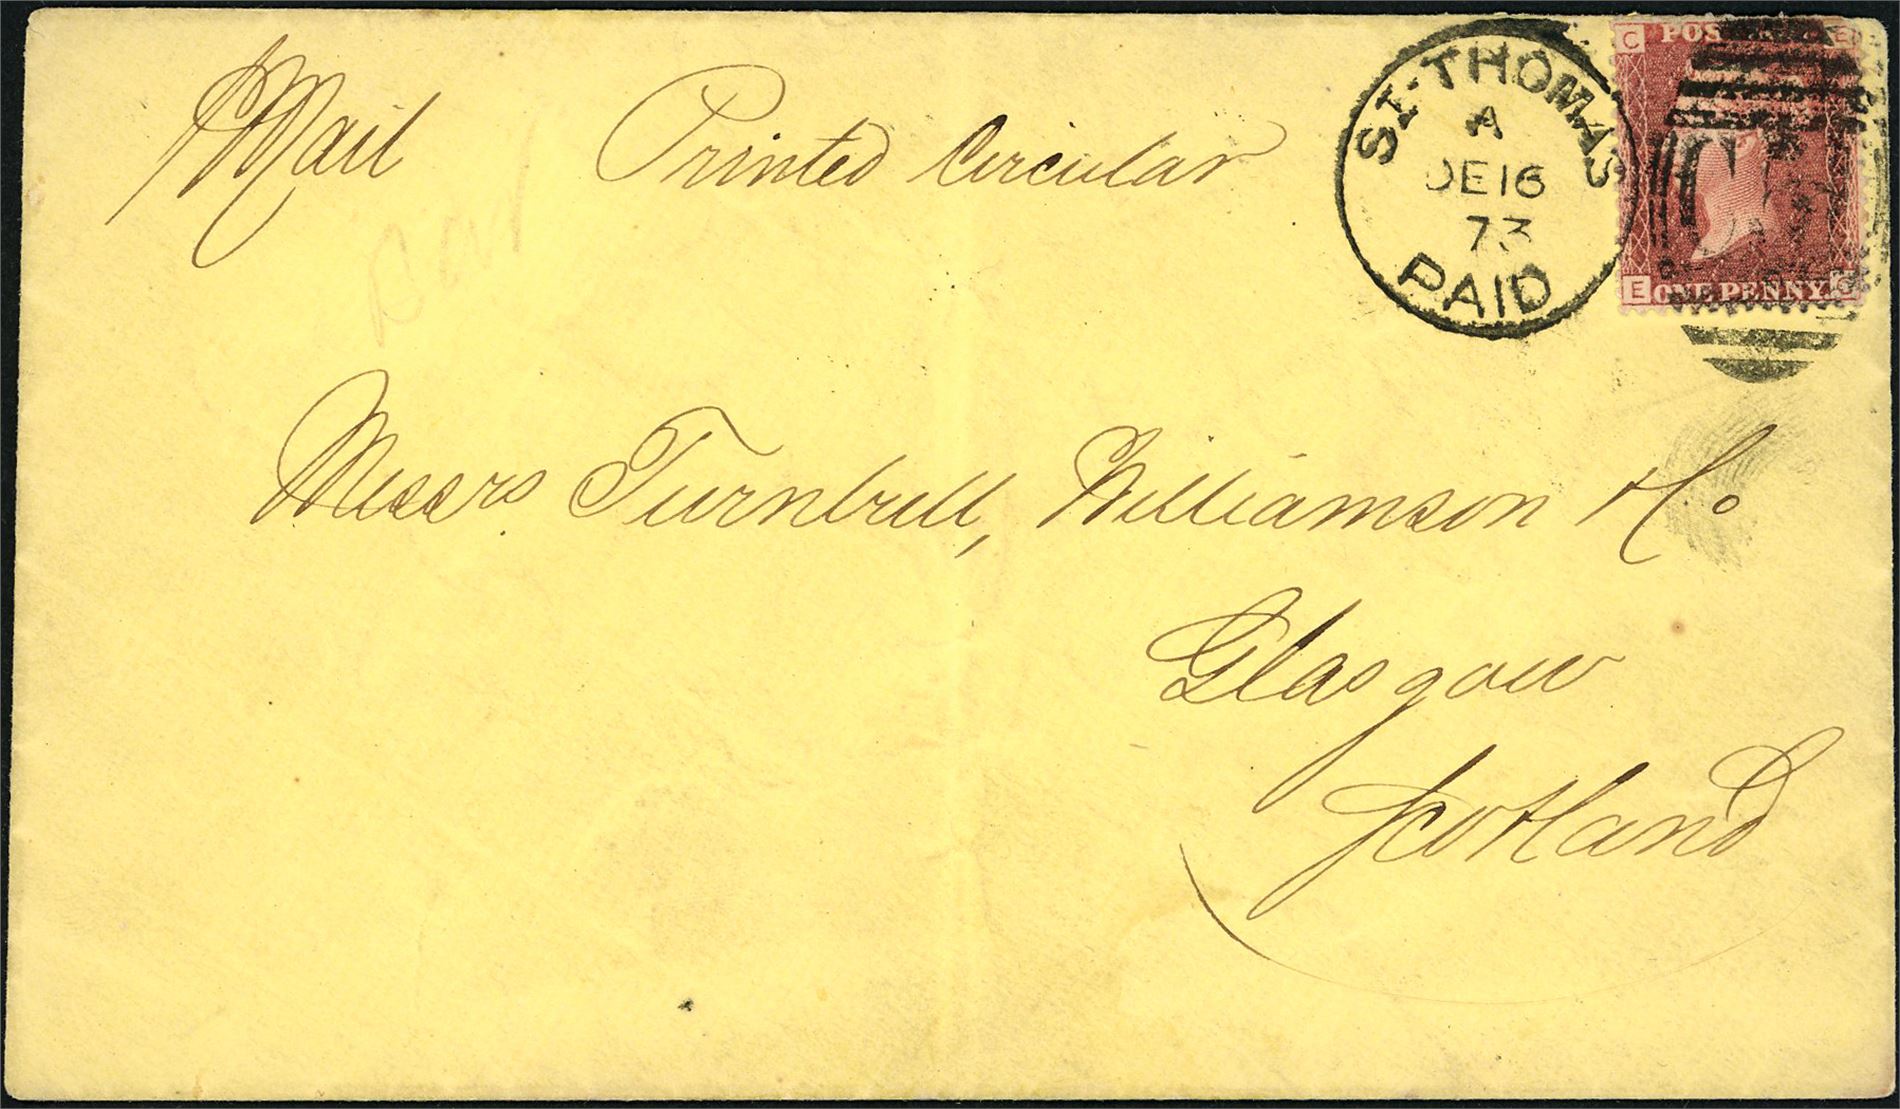 Mail Printed Circular
ST. THOMAS
A
DE 16
73
PAID
C POS E
E ONE PENNY C
Messrs Turnbull, Williamson & Co
Glasgow
Scotland